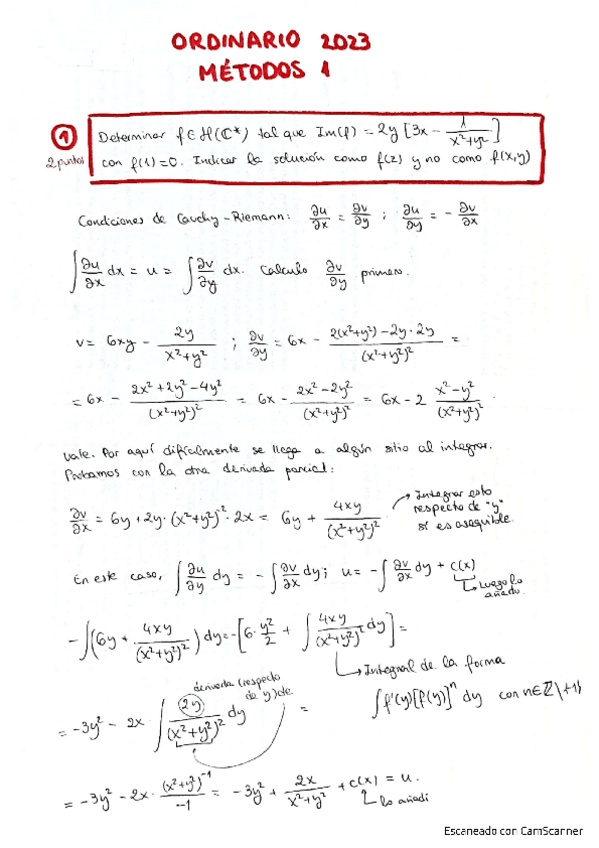 ORDINARIO 2023
MÉTODOS 1
① Determinar f∈H(ℂ*) tal que Im(f) = 2y [3x - 1/(x²+y²)]
2 puntos con f(1)=0. Indicar la solución como f(z) y no como f(x,y)
Condiciones de Cauchy-Riemann: ∂u/∂x = ∂v/∂y ; ∂u/∂y = - ∂v/∂x
∫ ∂u/∂x dx = u = ∫ ∂v/∂y dx. Calculo ∂v/∂y primero.
v = 6xy - 2y/(x²+y²) ; ∂v/∂y = 6x - (2(x²+y²) - 2y·2y)/(x²+y²)² =
= 6x - (2x²+2y²-4y²)/(x²+y²)² = 6x - (2x²-2y²)/(x²+y²)² = 6x - 2 (x²-y²)/(x²+y²)².
Vale. Por aquí difícilmente se llega a algún sitio al integrar.
Probamos con la otra derivada parcial:
∂v/∂x = 6y + 2y·(x²+y²)⁻²·2x = 6y + 4xy/(x²+y²)² → Integrar esto respecto de "y" sí es asequible.
En este caso, ∫ ∂u/∂y dy = - ∫ ∂v/∂x dy ; u = - ∫ ∂v/∂x dy + C(x)
↳ Luego lo añado.
- ∫ (6y + 4xy/(x²+y²)²) dy = - [6· y²/2 + ∫ 4xy/(x²+y²)² dy] =
↳ Integral de la forma
∫ f'(y)[f(y)]ⁿ dy con n∈ℤ\{-1}
derivada (respecto de y) de
= -3y² - 2x ∫ 2y/(x²+y²)² dy =
= -3y² - 2x · (x²+y²)⁻¹/-1 = -3y² + 2x/(x²+y²) + C(x) = u.
↳ lo añadí
Escaneado con CamScanner